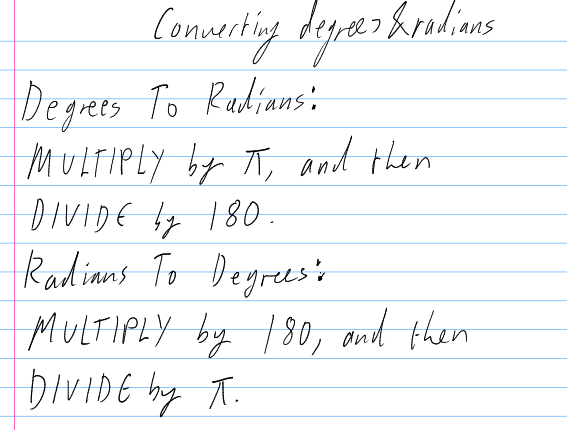 Converting degrees & radians
Degrees To Radians:
MULTIPLY by π, and then
DIVIDE by 180.
Radians To Degrees:
MULTIPLY by 180, and then
DIVIDE by π.